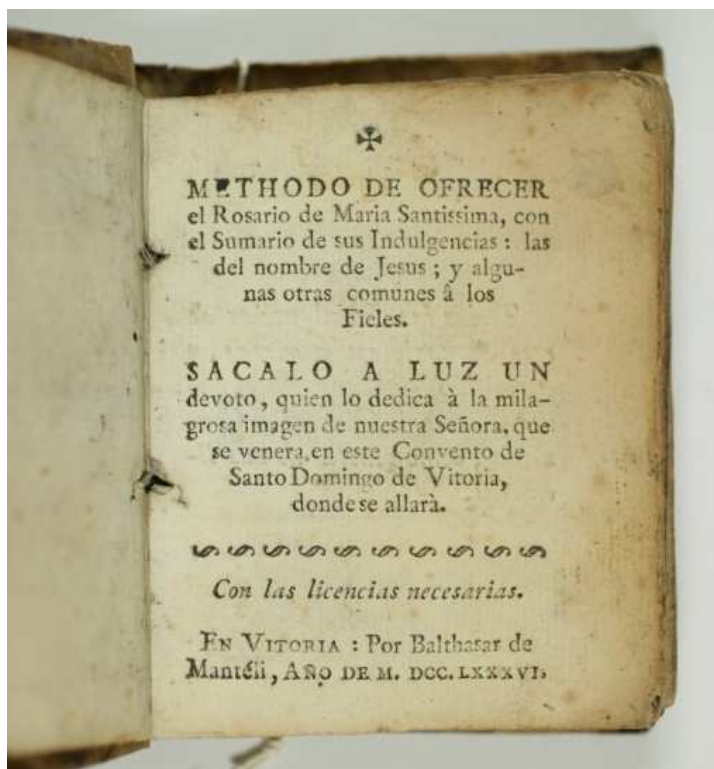 ✠
METHODO DE OFRECER
el Rosario de Maria Santissima, con
el Sumario de sus Indulgencias : las
del nombre de Jesus ; y algu-
nas otras comunes â los
Fieles.
SACALO A LUZ UN
devoto, quien lo dedica à la mila-
grosa imagen de nuestra Señora, que
se venera, en este Convento de
Santo Domingo de Vitoria,
donde se allarà.
Con las licencias necesarias.
EN VITORIA : Por Balthasar de
Mantéli, AÑO DE M. DCC. LXXXVI.